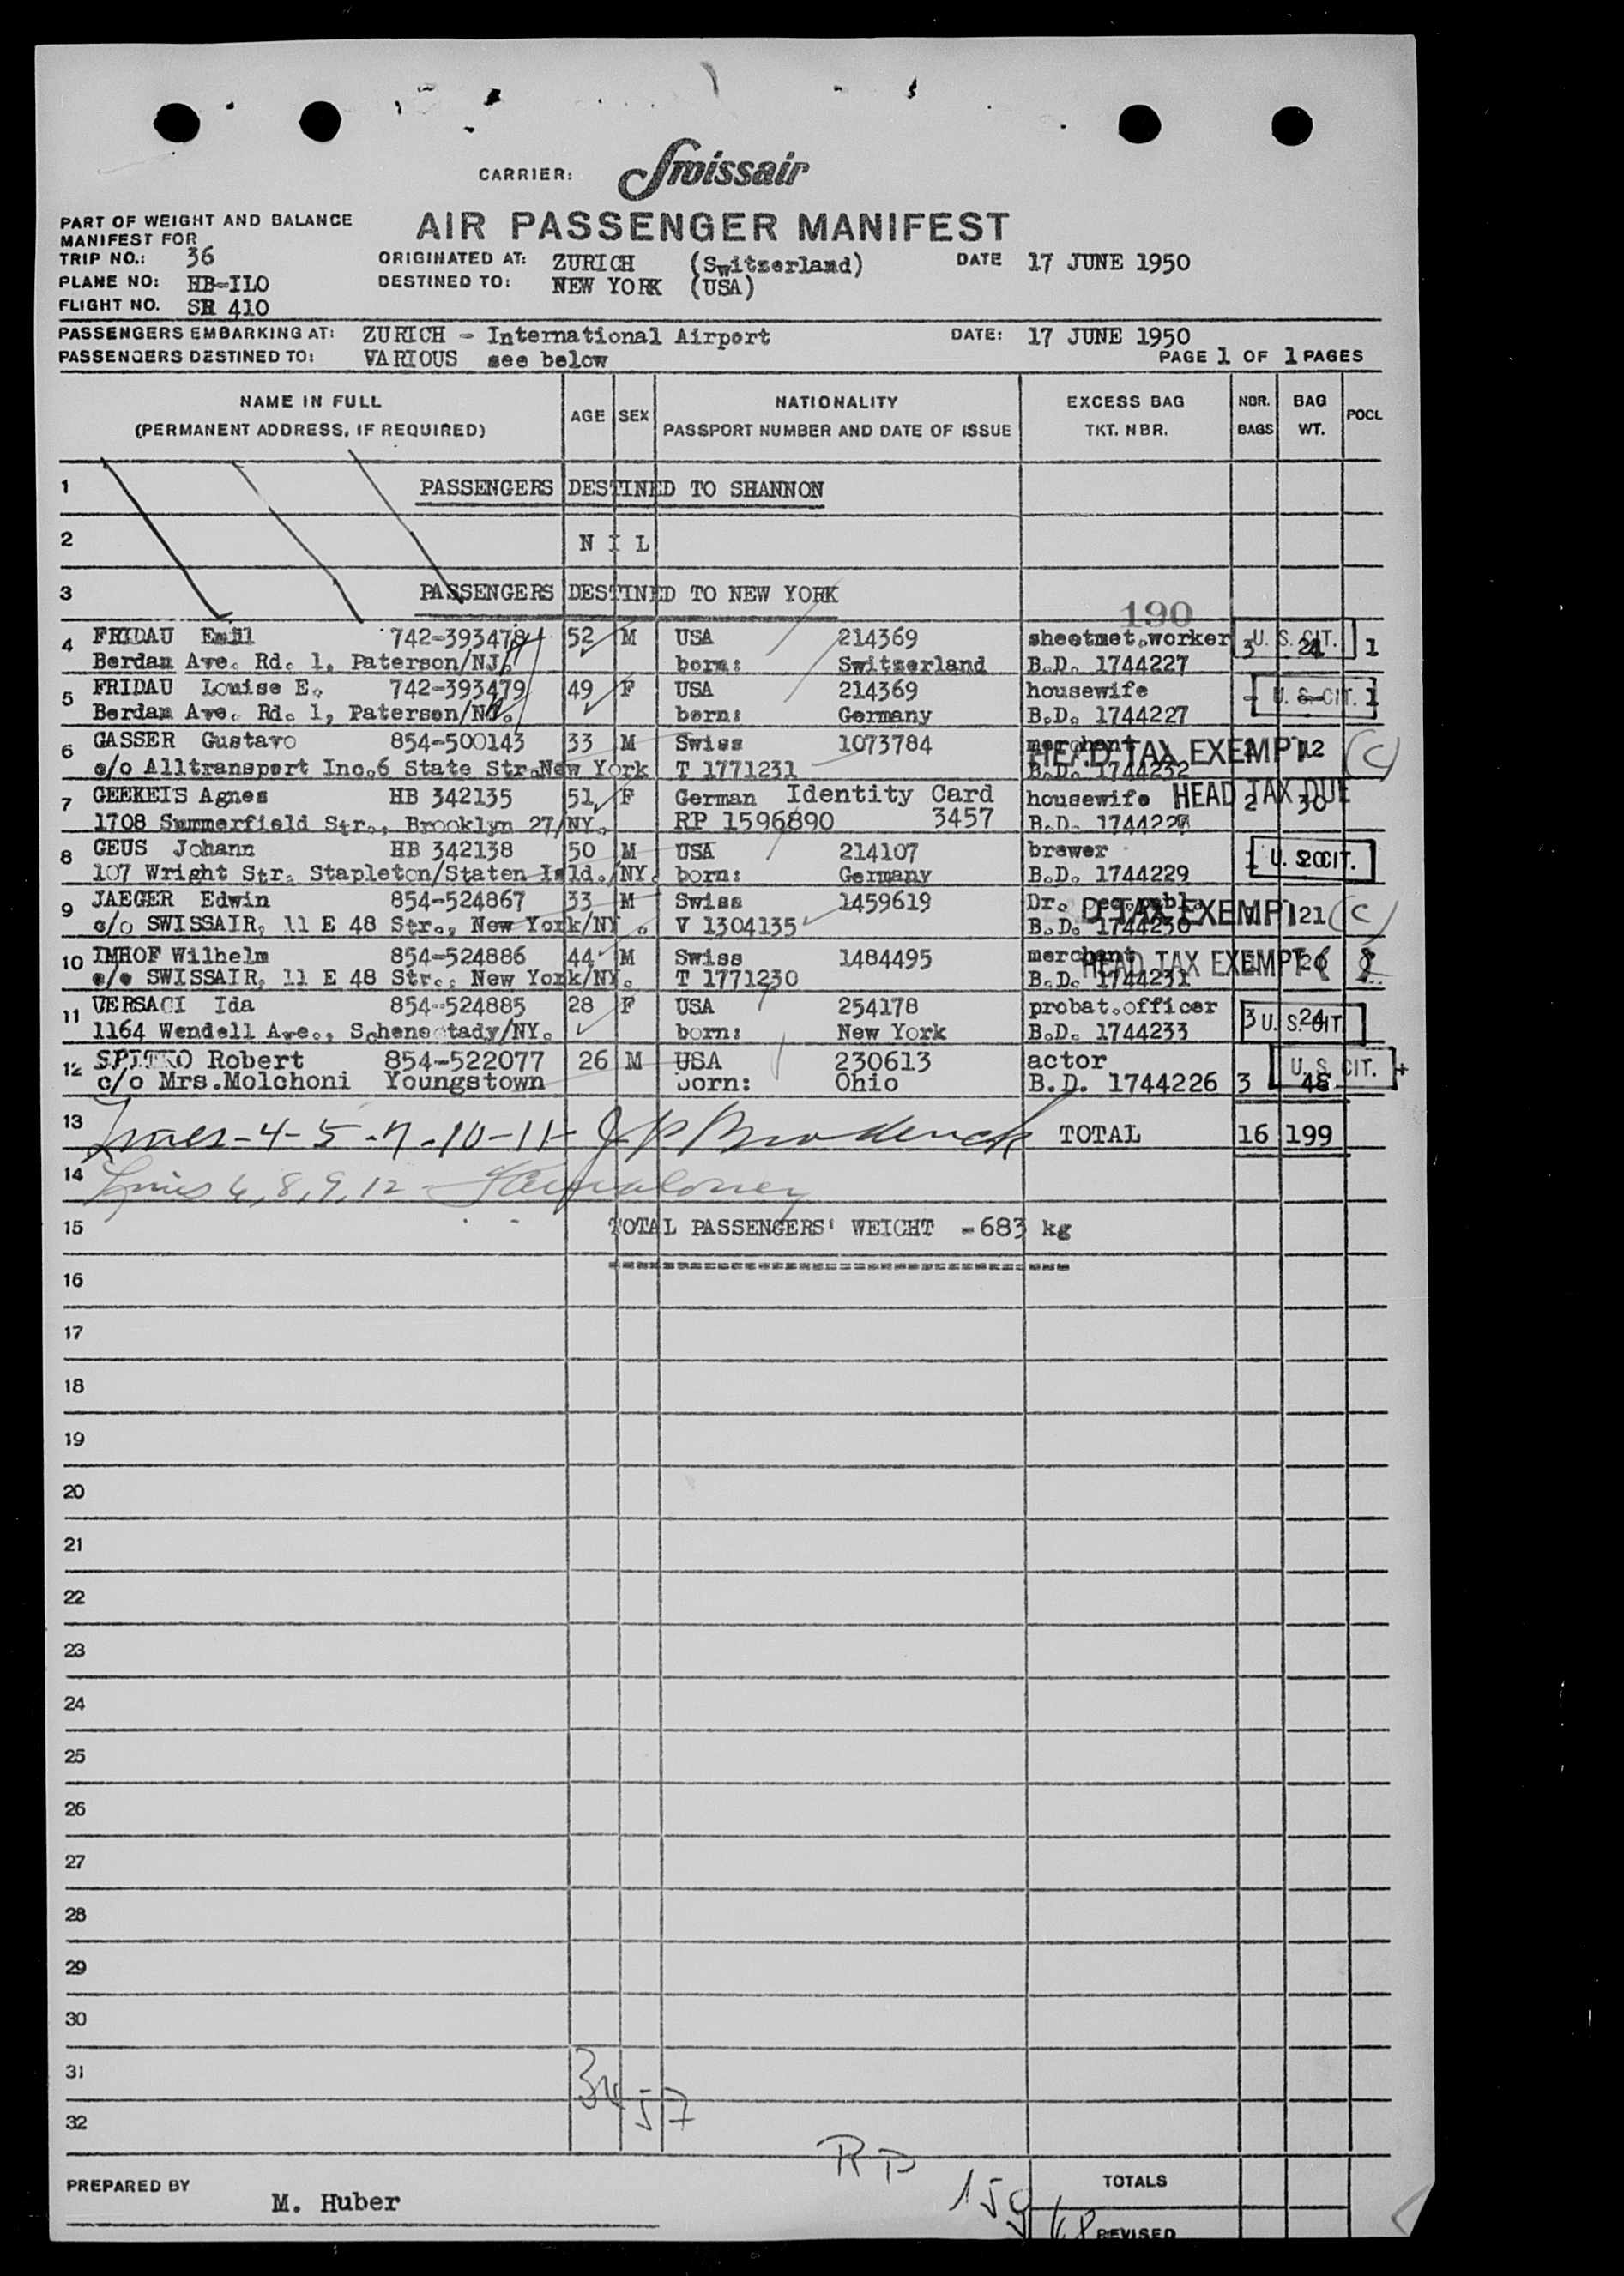 CARRIER: Swissair
PART OF WEIGHT AND BALANCE
MANIFEST FOR
AIR PASSENGER MANIFEST
TRIP NO.: 36 ORIGINATED AT: ZURICH (Switzerland) DATE 17 JUNE 1950
PLANE NO: HB-ILO DESTINED TO: NEW YORK (USA)
FLIGHT NO. SR 410
PASSENGERS EMBARKING AT: ZURICH - International Airport DATE: 17 JUNE 1950
PASSENGERS DESTINED TO: VARIOUS see below PAGE 1 OF 1 PAGES
NAME IN FULL AGE SEX NATIONALITY EXCESS BAG NBR. BAG POCL
(PERMANENT ADDRESS, IF REQUIRED) PASSPORT NUMBER AND DATE OF ISSUE TKT. NBR. BAGS WT.
1 PASSENGERS DESTINED TO SHANNON
2 N I L
3 PASSENGERS DESTINED TO NEW YORK
190
4 FRIDAU Emil 742-393478 52 M USA 214369 sheetmet.worker 3 U. S. CIT. 24 1
Berdan Ave. Rd. 1, Paterson/NJ. born: Switzerland B.D. 1744227
5 FRIDAU Louise E. 742-393479 49 F USA 214369 housewife - U. S. CIT. 1
Berdan Ave. Rd. 1, Paterson/NJ. born: Germany B.D. 1744227
6 GASSER Gustavo 854-500143 33 M Swiss 1073784 merchant HEAD TAX EXEMPT 12 (C)
c/o Alltransport Inc.6 State Str.New York T 1771231 B.D. 1744232
7 GEEKEIS Agnes HB 342135 51 F German Identity Card housewife HEAD TAX DUE 2 30
1708 Summerfield Str., Brooklyn 27/NY. RP 1596890 3457 B.D.
8 GEUS Johann HB 342138 50 M USA 214107 brewer U. S. CIT. 20
107 Wright Str. Stapleton/Staten Isld./NY. born: Germany B.D. 1744229
9 JAEGER Edwin 854-524867 33 M Swiss 1459619 Dr. TAX EXEMPT 21 (C)
c/o SWISSAIR, 11 E 48 Str., New York/NY. V 1304135 B.D. 1744230
10 IMHOF Wilhelm 854-524886 44 M Swiss 1484495 merchant HEAD TAX EXEMPT
c/o SWISSAIR, 11 E 48 Str., New York/NY. T 1771230 B.D. 1744231
11 VERSACI Ida 854-524885 28 F USA 254178 probat.officer 3 U. S. CIT. 24
1164 Wendell Ave., Schenectady/NY. born: New York B.D. 1744233
12 SPITKO Robert 854-522077 26 M USA 230613 actor U. S. CIT. +
c/o Mrs.Molchoni Youngstown born: Ohio B.D. 1744226 3 48
13 Lines-4-5-7-10-11- J P Broderick TOTAL 16 199
14 Lines 6, 8, 9, 12
15 TOTAL PASSENGERS' WEIGHT - 683 kg
16
17
18
19
20
21
22
23
24
25
26
27
28
29
30
31
32
3457
RP
159
68
PREPARED BY M. Huber TOTALS
REVISED